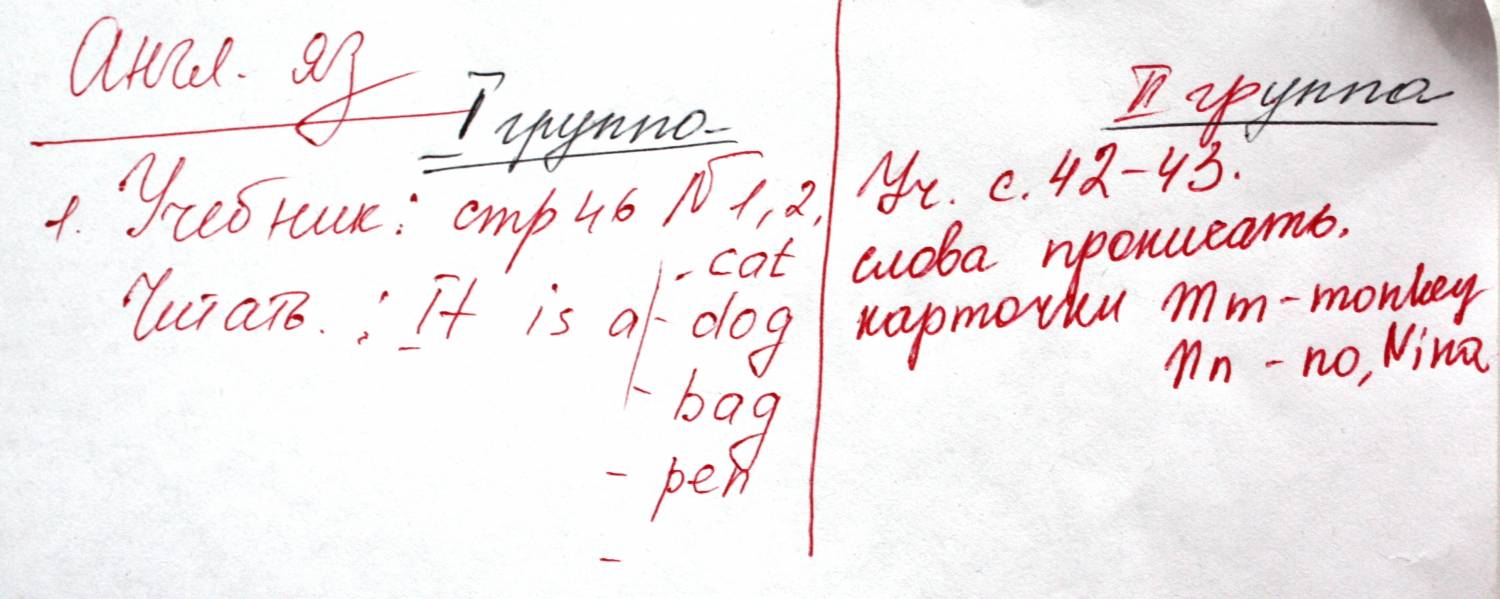 Англ. яз
I группа
1. Учебник: стр 46 № 1, 2,
Читать. : It is a - cat
- dog
- bag
- pen
-
II группа
Уч. с. 42-43.
слова прописать.
карточки Mm - monkey
Nn - no, Nina